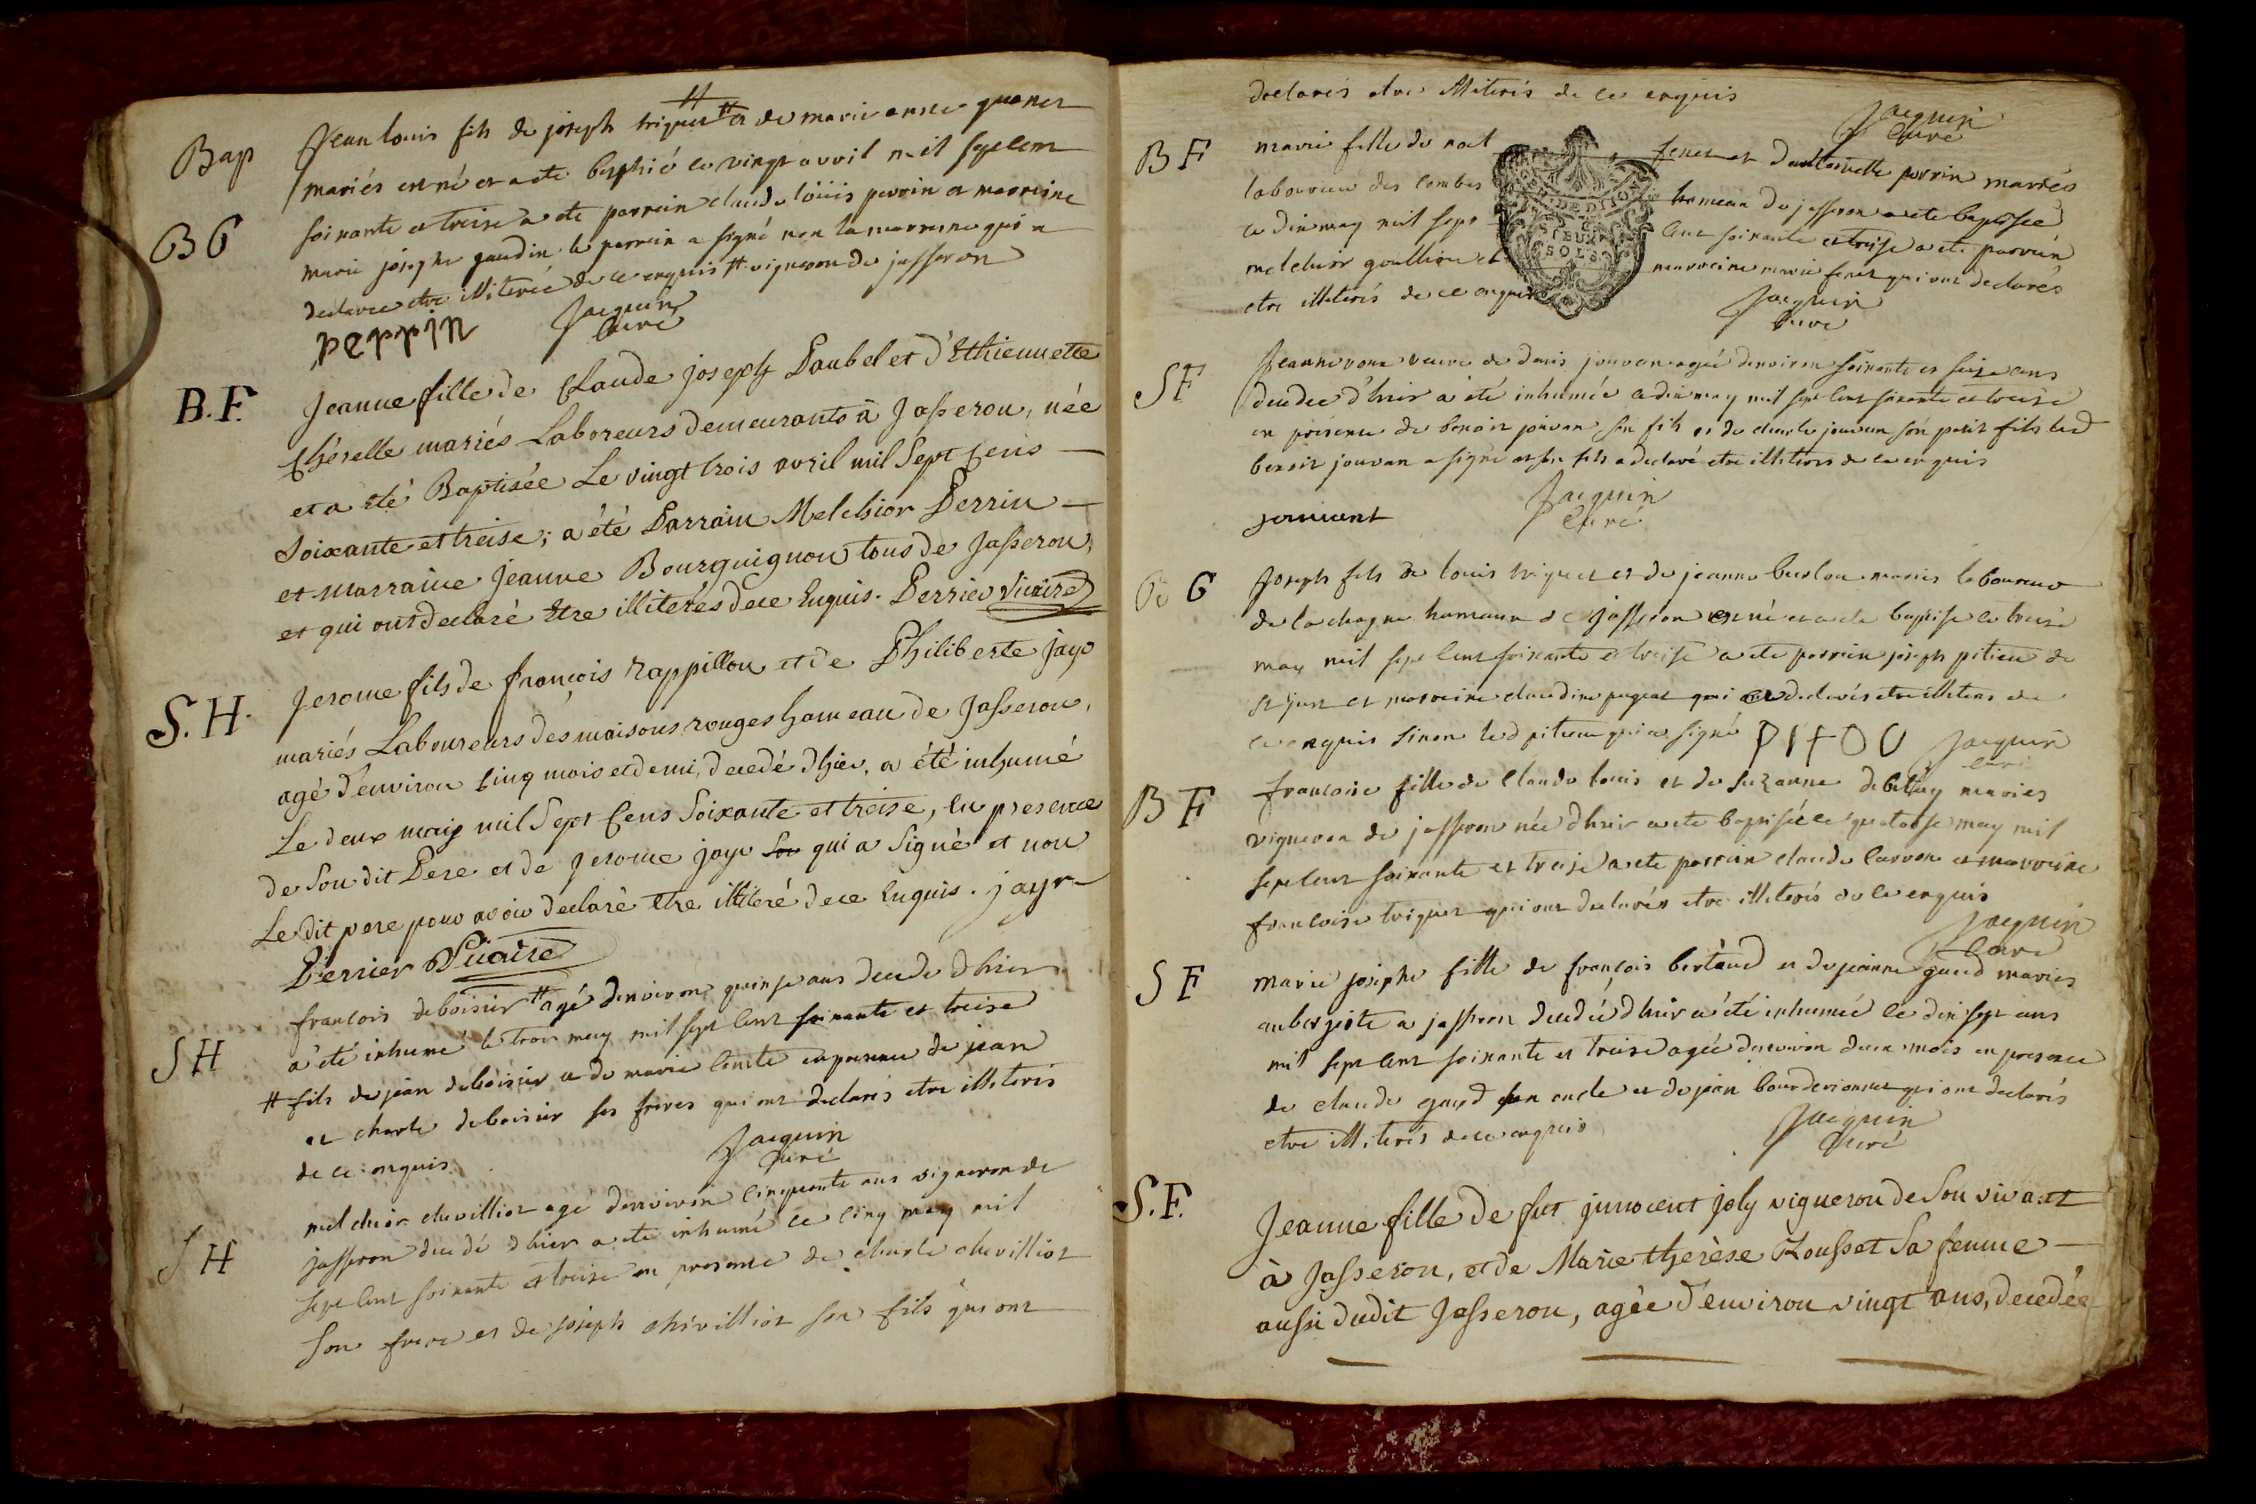 Bap
B G
Jean louis fils de joseph triquet # et de marie anne guenet
mariés est né et a ete baptisé le vingt avril mil sept cent
soixante et treise a ete parrain claude loüis perrin et marreine
marie josephe gaudin le parrain a signé non la marreine qui a
declaree etre illiterée de ce enquis # vigneron de jasseron
perrin Jacquin
curé
B.F.
Jeanne fille de Claude joseph Paubel et d'Ethiennette
Chérelle mariés Laboreurs demeurants à Jasseron, née
et a été Baptisée Le vingt trois avril mil Sept Cens
Soixante et treise; a été Parrain Melchior Perrin
et Marraine Jeanne Bourguignon tous de Jasseron,
et qui ont declaré Etre illiterés de ce Enquis. Perrier Vicaire
S.H.
Jerome fils de françois Rappillon et de Philiberte Jayr
mariés Laboureurs des maisons rouges hameau de Jasseron,
agé d'environ Cinq mois et demi, decedé d'hier, a été inhumé
Le deux may mil Sept Cens Soixante et treise, En presence
de Son dit Pere et de Jerome jayr qui a Signé et non
Le dit pere pour avoir declaré Etre illiteré de ce Enquis. jayr
Perrier Vicaire
S H
francois deboisier # agé denviron quinse ans decedé d'hier
a été inhumé le trois may mil sept cent soixante et treise
# fils de jean deboisier et de marie comte en presence de jean
et charle deboisier ses freres qui ont declarés etre illiterés
de ce enquis Jacquin
curé
S H
melchior chevilliot agé denviron cinquante ans vigneron de
jasseron decedé d'hier a ete inhumé le cinq may mil
sept cent soixante et treise en presence de charle chevilliot
son frere et de joseph chevilliot son fils qui ont
declarés etre illiterés de ce enquis
Jacquin
curé
B F
marie fille de fenet et dantoinette perrin mariés
laboureur des combes hameau de jasseron a ete baptisée
le dix may mil sept cent soixante et treise a ete parrain
melchior et marreine marie fenet qui ont declarés
etre illiterés de ce enquis Jacquin
curé
GEN DEDITION
DEUX
SOLS
S F
Jeanne veuve de denis jouvan agée denviron soixante et seize ans
decedee d'hier a été inhumée le dix may mil sept cent soixante et treise
en presence de benoit jouvan son fils et de charle jouvan son petit fils led
benoit jouvan a signé et son fils a declaré etre illiteré de ce enquis
jouvent Jacquin
curé
G
Joseph fils de louis triquet et de jeanne mariés laboureur
de la chagne hameau de jasseron est né et a ete baptisé le treise
may mil sept cent soixante et treise a ete parrain joseph pitieu de
st just et marreine claudine pugeat qui ont declarés etre illiterés de
ce enquis sinon led pitieu qui a signé Jacquin
curé
B F
francoise fille de claude louis et de suzanne mariés
vigneron de jasseron née d'hier a ete baptisée le quatorse may mil
sept cent soixante et treise a ete parrain claude et marreine
francoise triquet qui ont declarés etre illiterés de ce enquis
Jacquin
curé
S F
marie josephe fille de françois bertaud et de jeanne mariés
aubergiste a jasseron decedée d'hier a été inhumée le dix sept
mil sept cent soixante et treise agée denviron deux mois en presence
de claude son oncle et de jean qui ont declarés
etre illiterés de ce enquis Jacquin
curé
S.F.
Jeanne fille de fut jnnocent joly vigneron de Son vivant
à Jasseron, et de Marie therèse Rousset Sa femme
aussi dudit Jasseron, agée d'environ vingt ans, decedée